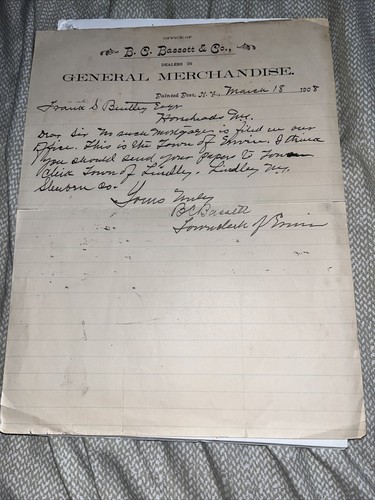 OFFICE OF
B. C. Bassett & Co.,
DEALERS IN
GENERAL MERCHANDISE.
Painted Post, N. Y., March 18 1908
Frank S Bentley Esqr
Horseheads Ny.
Dear Sir No such mortgage is filed in our
Office. This is the Town of Erwin. I think
you should send your paper to Town
Clerk Town of Lindley. Lindley Ny.
Steuben Co.
Yours Truly
B C Bassett
Townclerk of Erwin